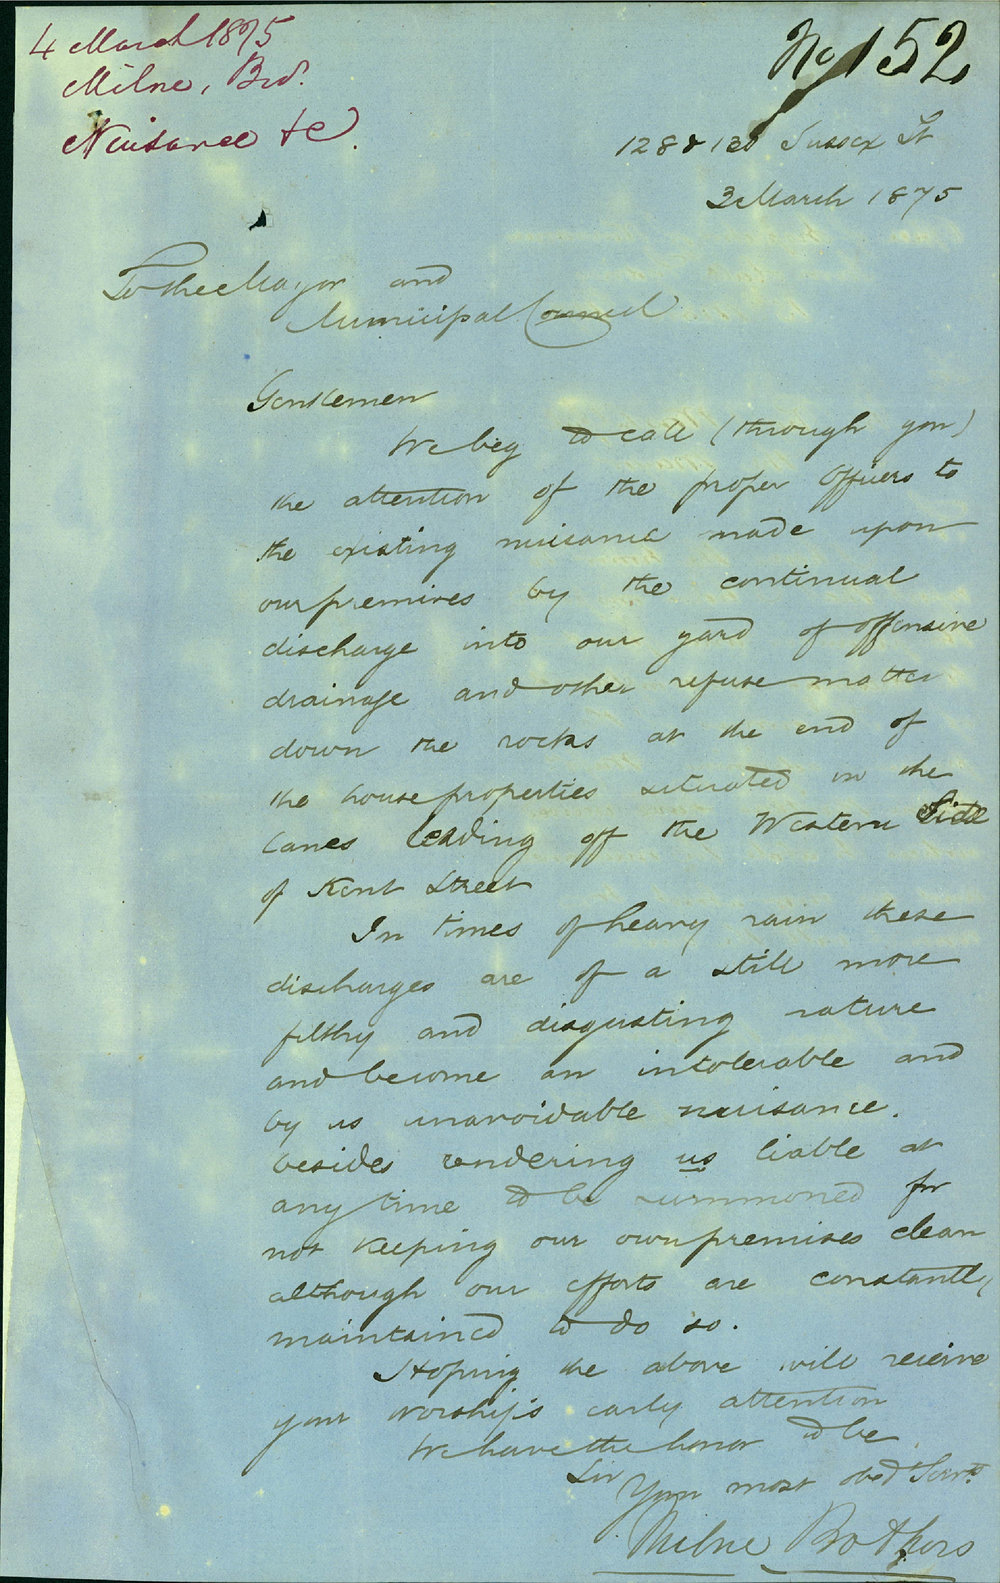 4 March 1875
Milne, Bros.
Nuisance &c.
No 152
128 & 130 Sussex St
3 March 1875
To the Mayor and
Municipal Council
Gentlemen
We beg to call (through you)
the attention of the proper Officers to
the existing nuisance made upon
our premises by the continual
discharge into our yard of offensive
drainage and other refuse matter
down the rocks at the end of
the house properties situated in the
lanes leading off the Western Side
of Kent Street
In times of heavy rain these
discharges are of a still more
filthy and disgusting nature
and become an intolerable and
by us unavoidable nuisance.
besides rendering us liable at
any time to be summoned for
not keeping our own premises clean
although our efforts are constantly
maintained to do so.
Hoping the above will receive
your worships early attention
We have the honor to be
Sir
Your most obedt Servts
Milne Brothers